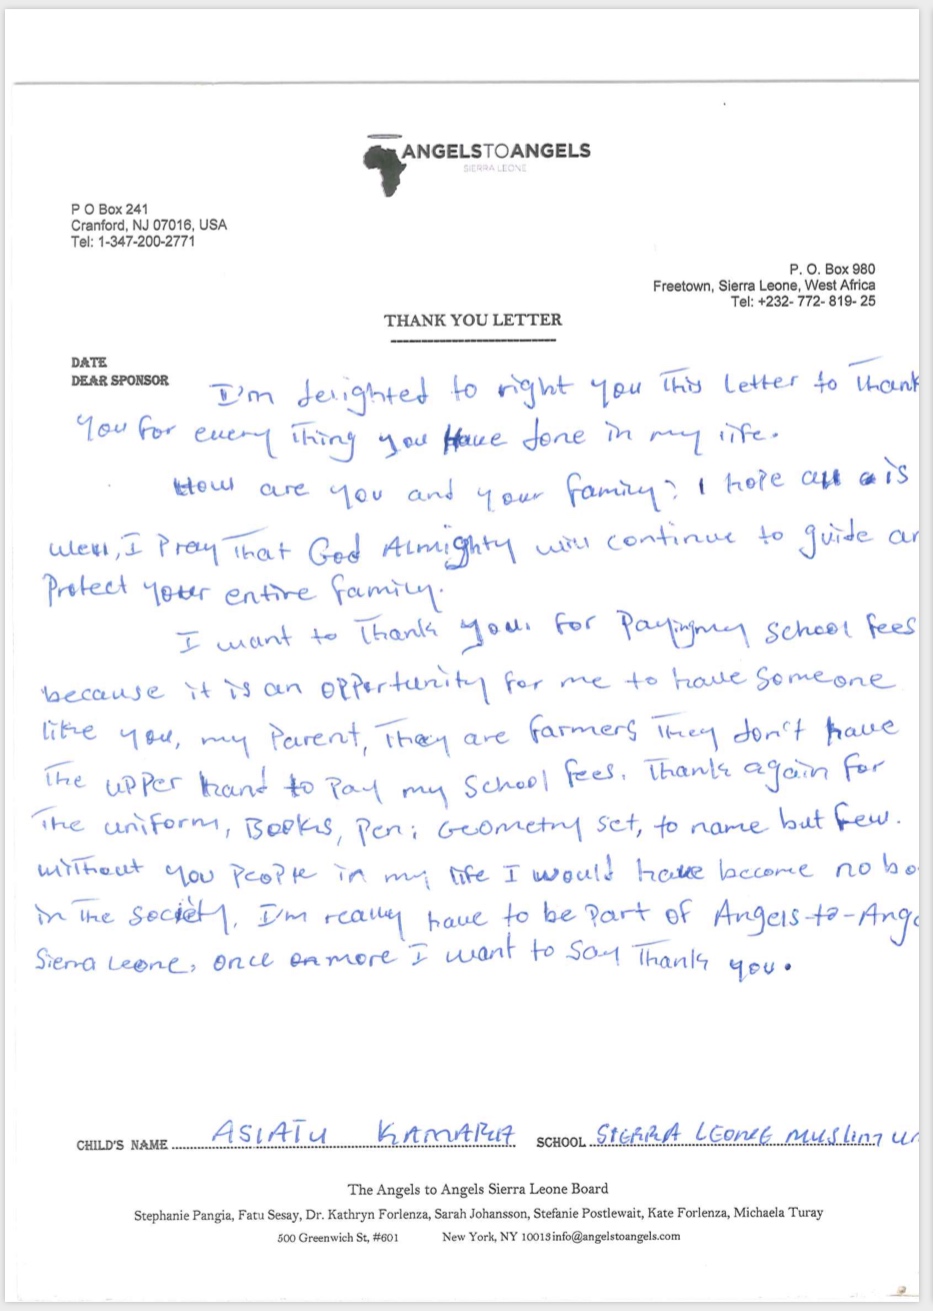 ANGELSTOANGELS
SIERRA LEONE
P O Box 241
Cranford, NJ 07016, USA
Tel: 1-347-200-2771
P. O. Box 980
Freetown, Sierra Leone, West Africa
Tel: +232- 772- 819- 25
THANK YOU LETTER
DATE
DEAR SPONSOR
I'm delighted to right you This Letter to Thank
you for every Thing you Have done in my life.
How are you and your family? I hope all is
well, I Pray That God Almighty will continue to guide an
Protect your entire family.
I want to Thank you. for Paying my School fees
because it is an opportunity for me to have Someone
like you, my Parent, They are farmers They don't have
The upper hand to Pay my School fees. Thank again for
The uniform, Books, Pen; Geometry set, to name but few.
without you People in my life I would have become no bo
in The Society. I'm really have to be Part of Angels-to-Ang
Sierra Leone, once onmore I want to Say Thank you.
CHILD'S NAME ASIATU KAMARA SCHOOL SIERRA LEONE Muslim
The Angels to Angels Sierra Leone Board
Stephanie Pangia, Fatu Sesay, Dr. Kathryn Forlenza, Sarah Johansson, Stefanie Postlewait, Kate Forlenza, Michaela Turay
500 Greenwich St, #601 New York, NY 10013 info@angelstoangels.com